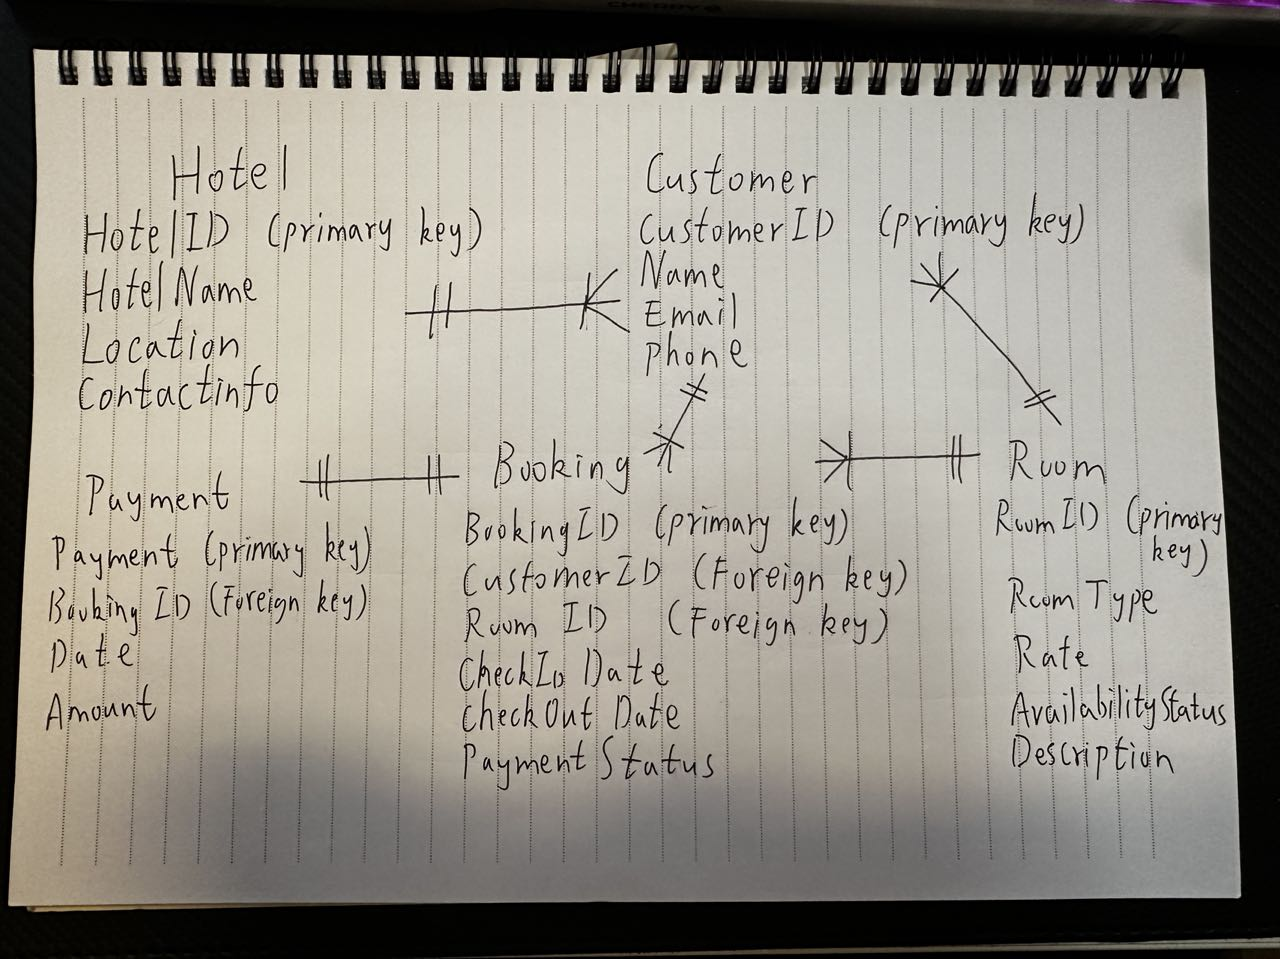 Hotel
HotelID (primary key)
Hotel Name
Location
Contactinfo
Customer
CustomerID (primary key)
Name
Email
Phone
Payment
Payment (primary key)
Booking ID (Foreign key)
Date
Amount
Booking
BookingID (primary key)
CustomerID (Foreign key)
Room ID (Foreign key)
CheckIn Date
CheckOut Date
Payment Status
Room
RoomID (primary
key)
Room Type
Rate
AvailabilityStatus
Description